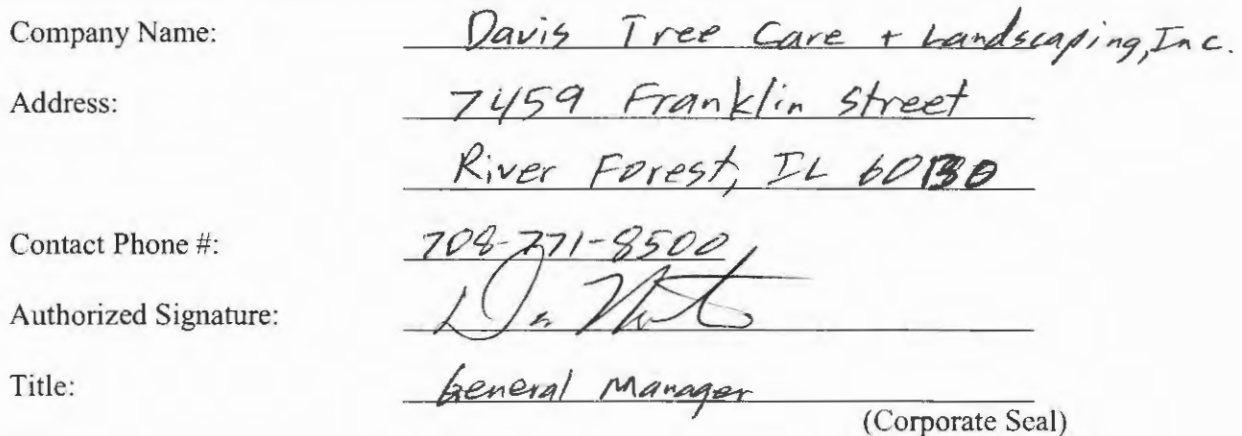 Company Name: Davis Tree Care + Landscaping, Inc.
Address: 7459 Franklin Street
River Forest, IL 60130
Contact Phone #: 708-771-8500
Authorized Signature:
Title: General Manager
(Corporate Seal)